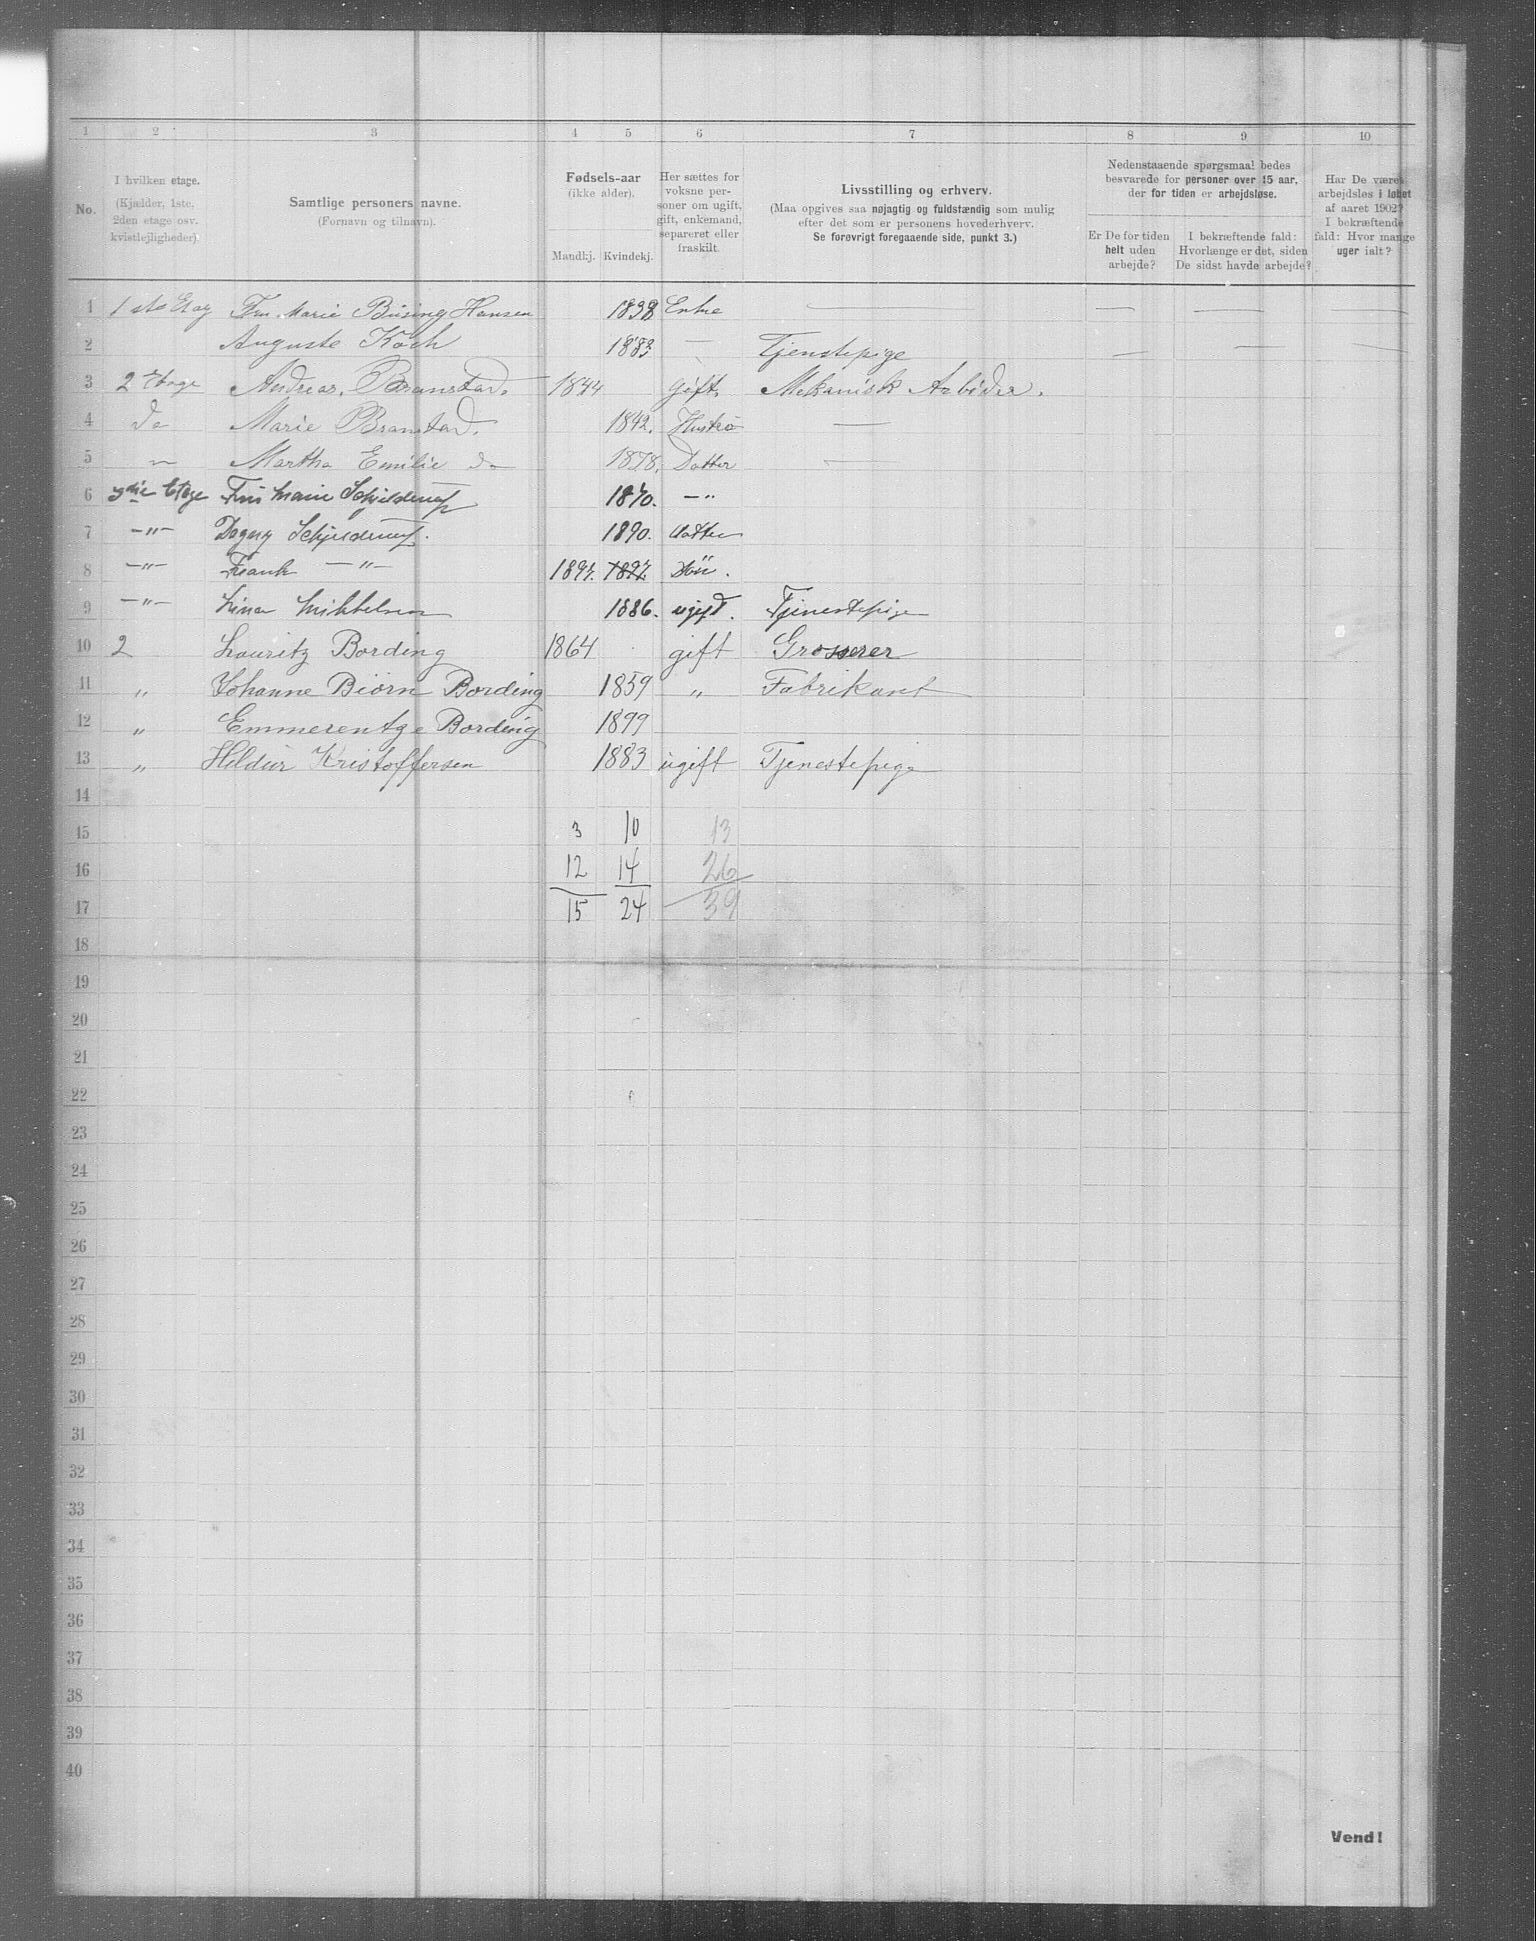 1 2 3 4 5 6 7 8 9 10
No.
I hvilken etage.
(Kjælder, 1ste,
2den etage osv.
kvistlejligheder).
Samtlige personers navne.
(Fornavn og tilnavn).
Fødsels-aar
(ikke alder).
Mandkj. Kvindekj.
Her sættes for
voksne per-
soner om ugift,
gift, enkemand,
separeret eller
fraskilt.
Livsstilling og erhverv.
(Maa opgives saa nøjagtig og fuldstændig som mulig
efter det som er personens hovederhverv.
Se forøvrigt foregaaende side, punkt 3.)
Nedenstaaende spørgsmaal bedes
besvarede for personer over 15 aar,
der for tiden er arbejdsløse.
Er De for tiden
helt uden
arbejde?
I bekræftende fald:
Hvorlænge er det, siden
De sidst havde arbejde?
Har De været
arbejdsløs i løbet
af aaret 1902?
I bekræftende
fald: Hvor mange
uger ialt?
1 1ste Etag Fru Marie Büsing Hansen 1838 Enke — — — —
2 Auguste Koch 1883 — Tjenstepige — — —
3 2 Etage Andreas Branstad. 1844 gift. Mekanisk Arbeider.
4 do Marie Branstad. 1842. Hustru —
5 " Martha Emilie do 1878. Datter —
6 3die Etage Fru Marie Schjelderup 1870. —"
7 —"— Dagny Schjelderup. 1890. datter
8 —"— Frank —"— 1897. 1897. Søn.
9 —"— Lina Mikkelsen 1886. ugift. Tjenestepige
10 2 Lauritz Bording 1864 gift Grosserer
11 " Johanne Biørn Bording 1859 " Fabrikant
12 " Emmerentze Bording 1899
13 " Hildur Kristoffersen 1883 ugift Tjenestepige
14
15 3 10 13
16 12 14 26
17 15 24 39
18
19
20
21
22
23
24
25
26
27
28
29
30
31
32
33
34
35
36
37
38
39
40
Vend!